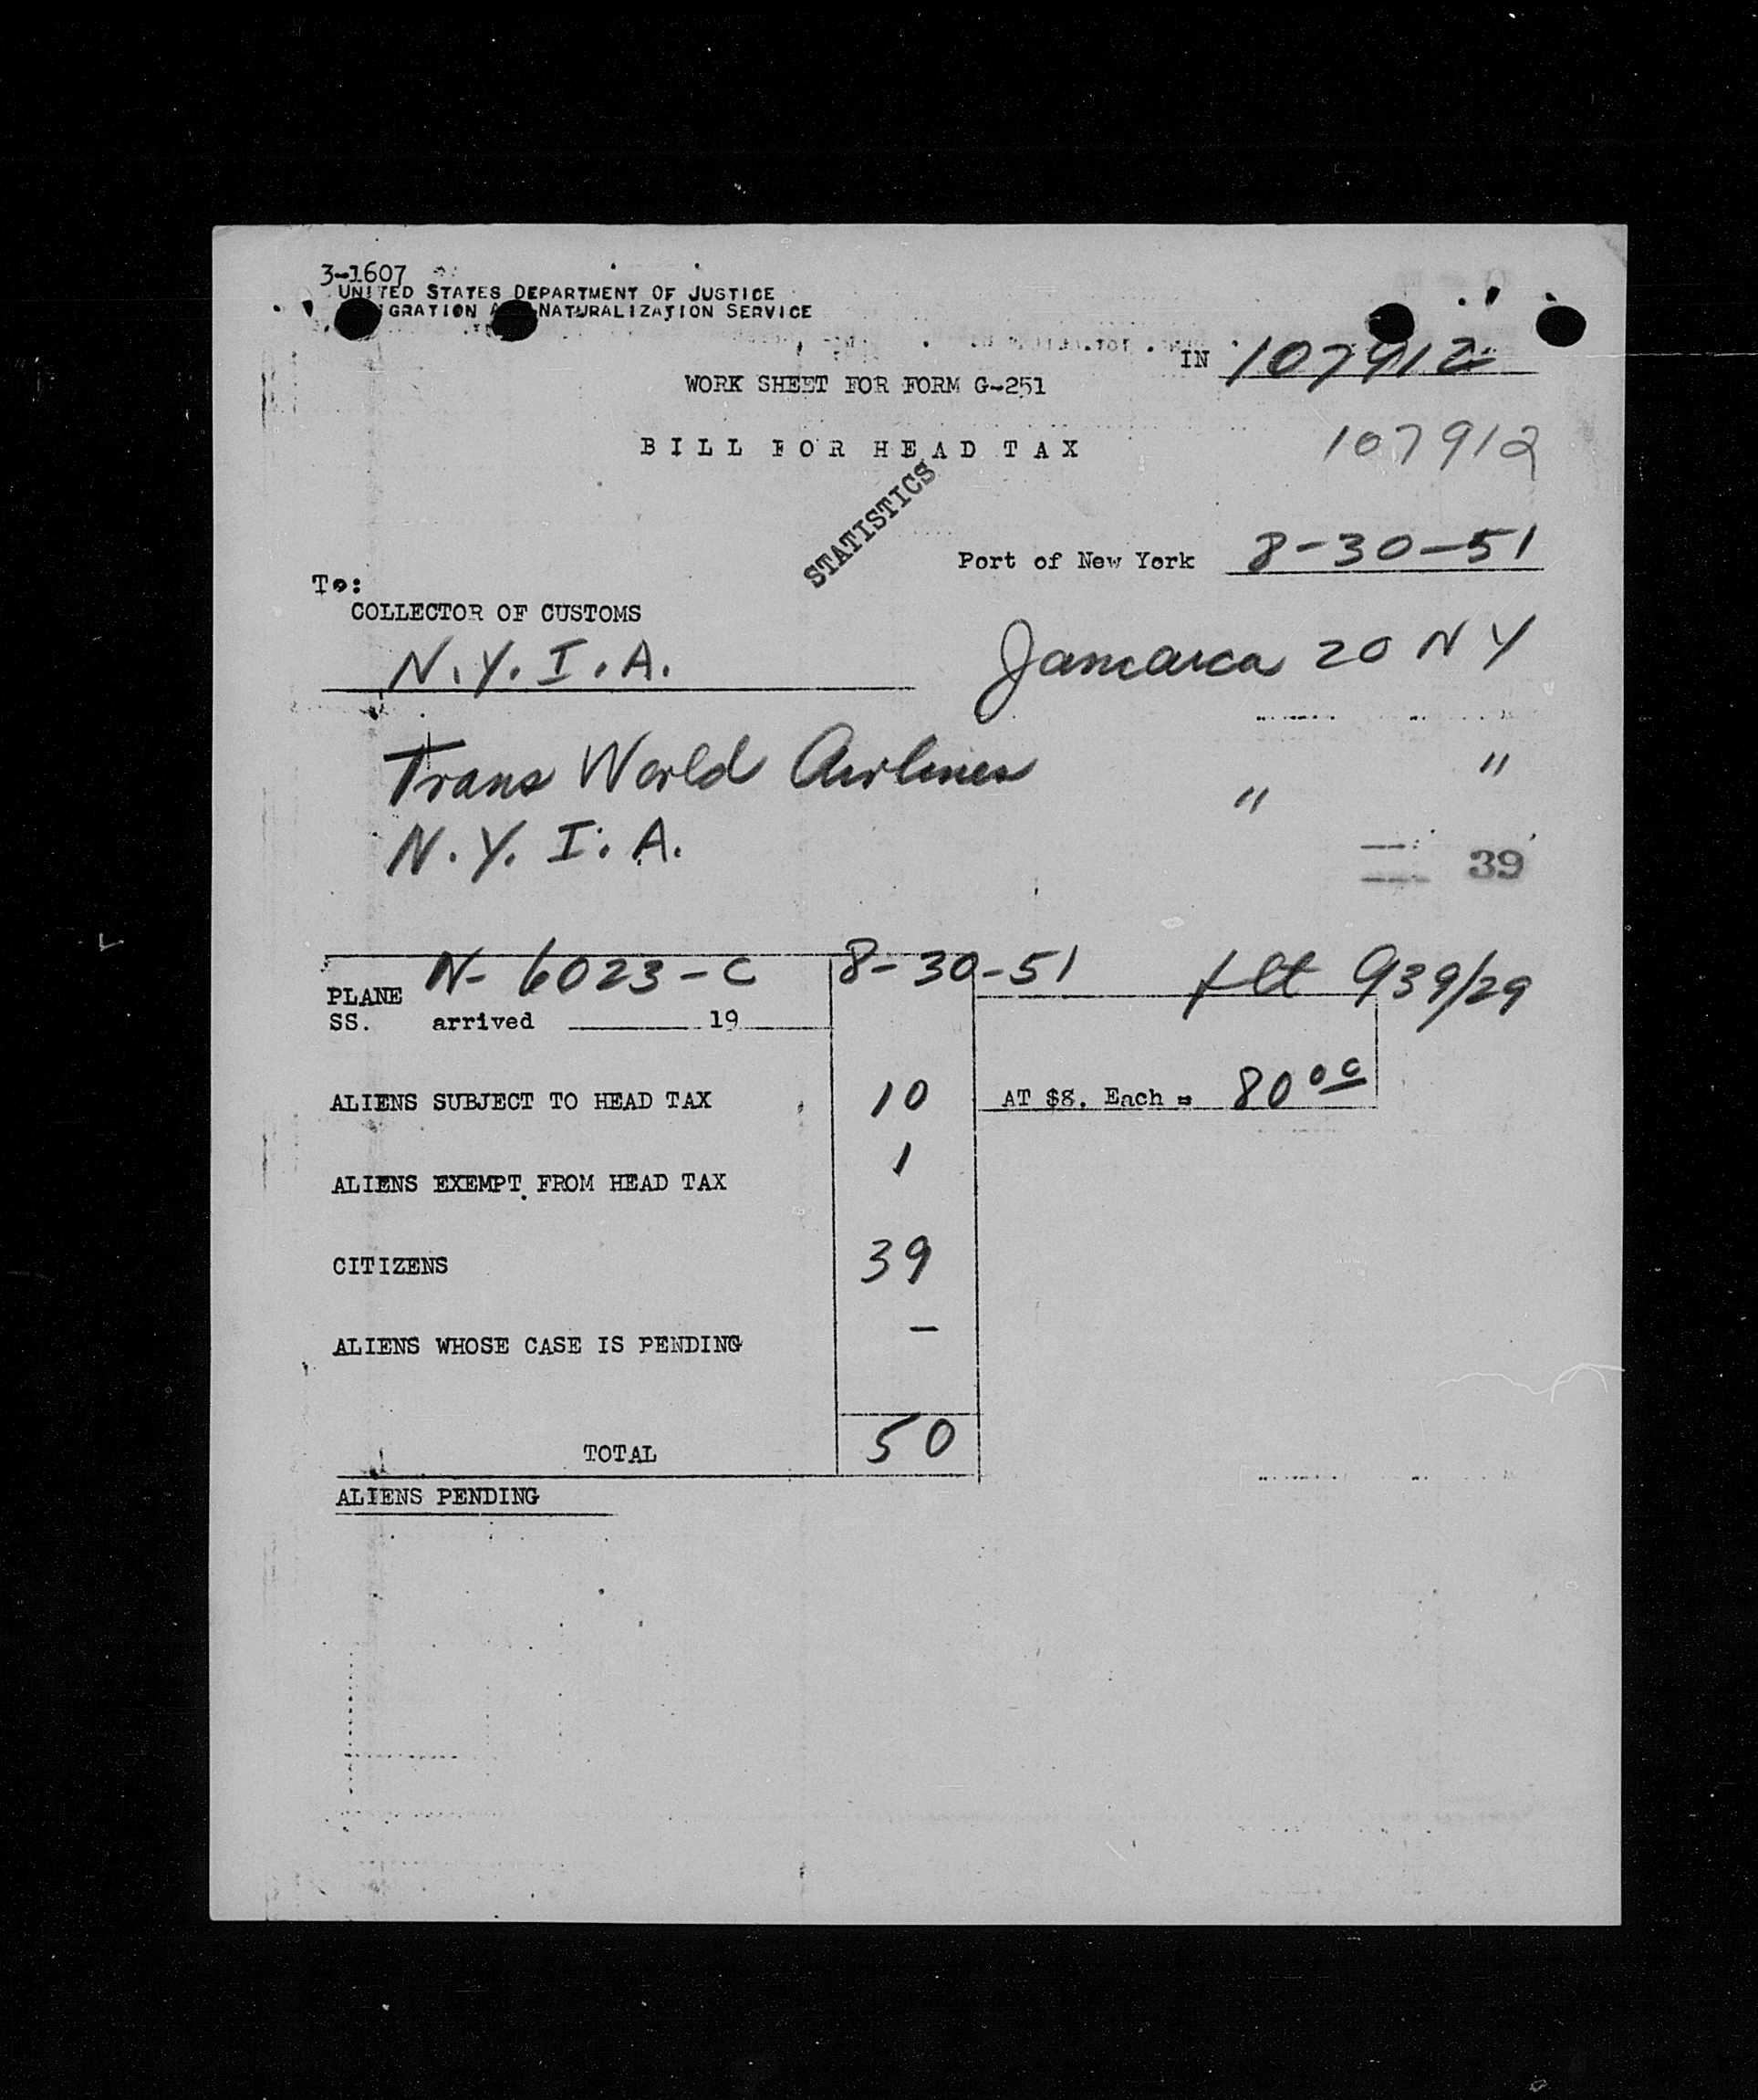 3-1607
UNITED STATES DEPARTMENT OF JUSTICE
IGRATION A NATURALIZATION SERVICE
IN 107912
WORK SHEET FOR FORM G-251
107912
BILL FOR HEAD TAX
STATISTICS
Port of New York 8-30-51
To:
COLLECTOR OF CUSTOMS
N.Y.I.A. Jamaica 20 N Y
Trans World Airlines " "
N.Y.I.A.
39
PLANE N-6023-C 8-30-51 flt 939/29
SS. arrived 19
ALIENS SUBJECT TO HEAD TAX 10 AT $8. Each = 80 00
ALIENS EXEMPT FROM HEAD TAX 1
CITIZENS 39
ALIENS WHOSE CASE IS PENDING -
TOTAL 50
ALIENS PENDING